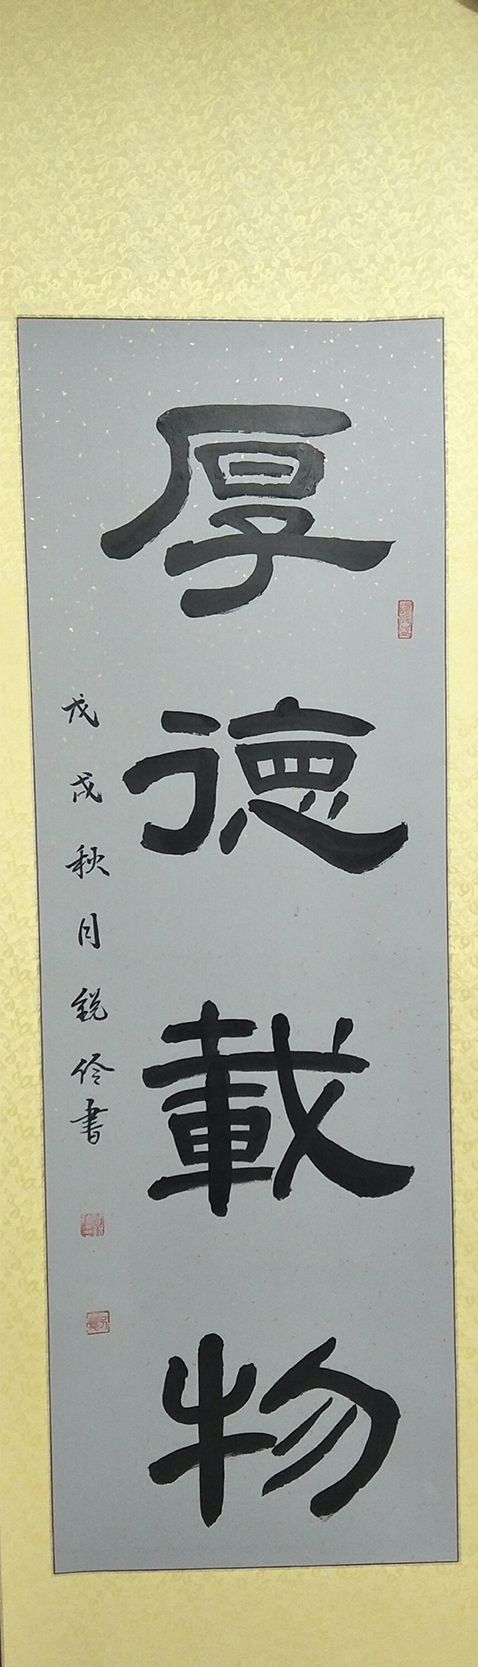 厚德載物
戊戌秋月銳伶書